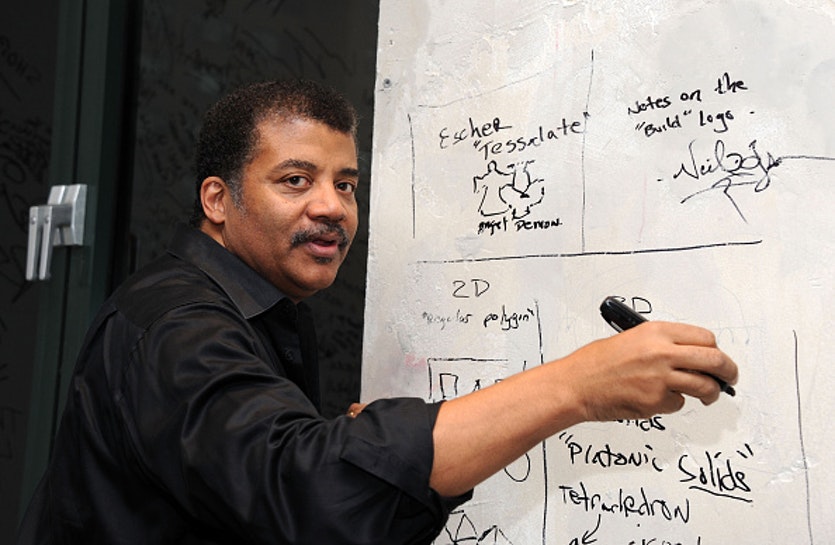 Escher
"Tessalate"
Angel Demon
Notes on the
"Build" Logo.
2D
"Regular polygin"
"Platonic Solids"
Tetrahedron